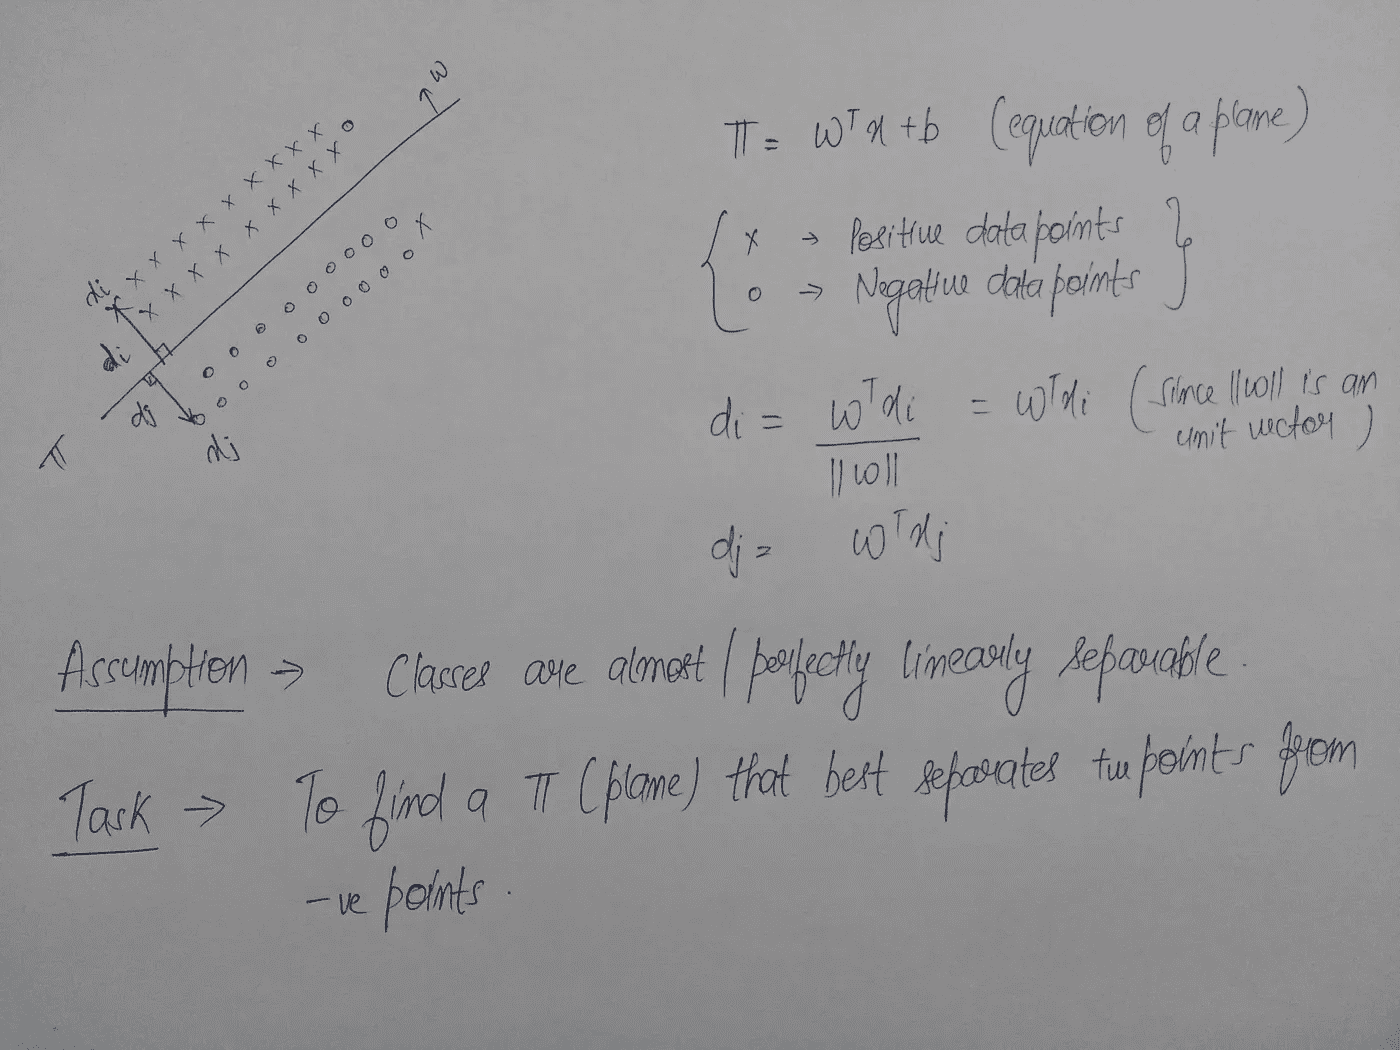 w
π = wᵀx + b (equation of a plane)
x → Positive datapoints
o → Negative datapoints
xi
di
dj
xj
π
di = wᵀxi / ||w|| = wᵀxi (Since ||w|| is an unit vector)
dj = wᵀxj
Assumption → Classes are almost / perfectly linearly separable.
Task → To find a π (plane) that best separates +ve points from
-ve points.